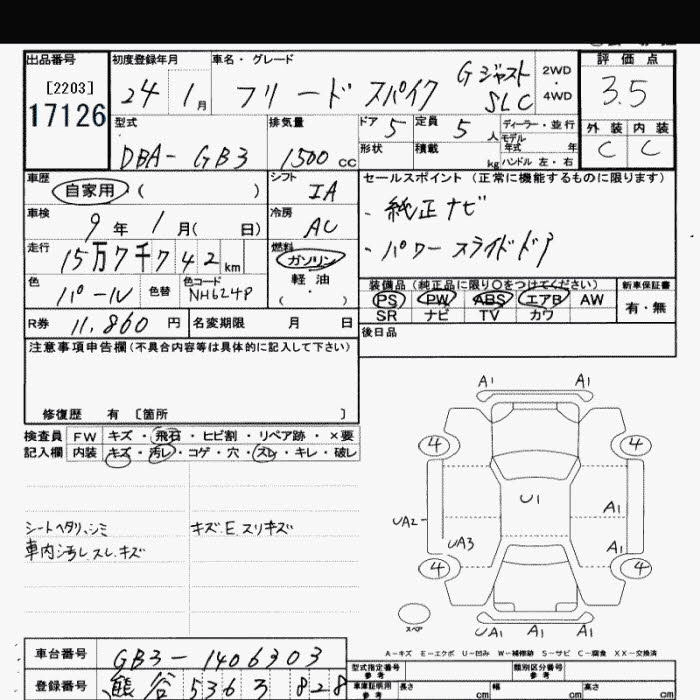 出品番号 初度登録年月 車名・グレード 評価点
[2203]
17126
24 1月 フリードスパイク Gジャスト SLC 2WD・4WD 3.5
型式 排気量 ドア 5 定員 5人 ディーラー・並行 外装 内装
DBA-GB3 1500cc 形状 積載 kg モデル年式 年 ハンドル 左・右 C C
車歴 シフト セールスポイント(正常に機能するものに限ります)
自家用 ( ) IA
車検 冷房 ・純正ナビ
9年 1月( 日) AC
走行 燃料 ・パワースライドドア
15万7千742km ガソリン
色 色替 色コード 軽油 装備品(純正品に限り○をつけてください) 新車保証書
パール NH624P ( ・ ) PS PW ABS エアB AW 有・無
SR ナビ TV カワ
R券 11,860円 名変期限 月 日 後日品
注意事項申告欄(不具合内容等は具体的に記入して下さい)
修復歴 有 [箇所 ]
検査員 FW キズ・飛石・ヒビ割・リペア跡・×要
記入欄 内装 キズ・汚レ・コゲ・穴・スレ・キレ・破レ
シートヘタリ、シミ キズ.E スリキズ
車内汚レ スレ.キズ
A1 A1
4 4
U1
A1
UA2
UA3 A1
4 4
スペア UA1 A1 A1
A-キズ E-エクボ U-凹み W-補修跡 S-サビ C-腐食 XX-交換済
車台番号 GB3-1406303 型式指定番号 参考 類別区分番号 参考
登録番号 熊谷 5363 828 車庫証明用 参考 長さ cm 幅 cm 高さ cm